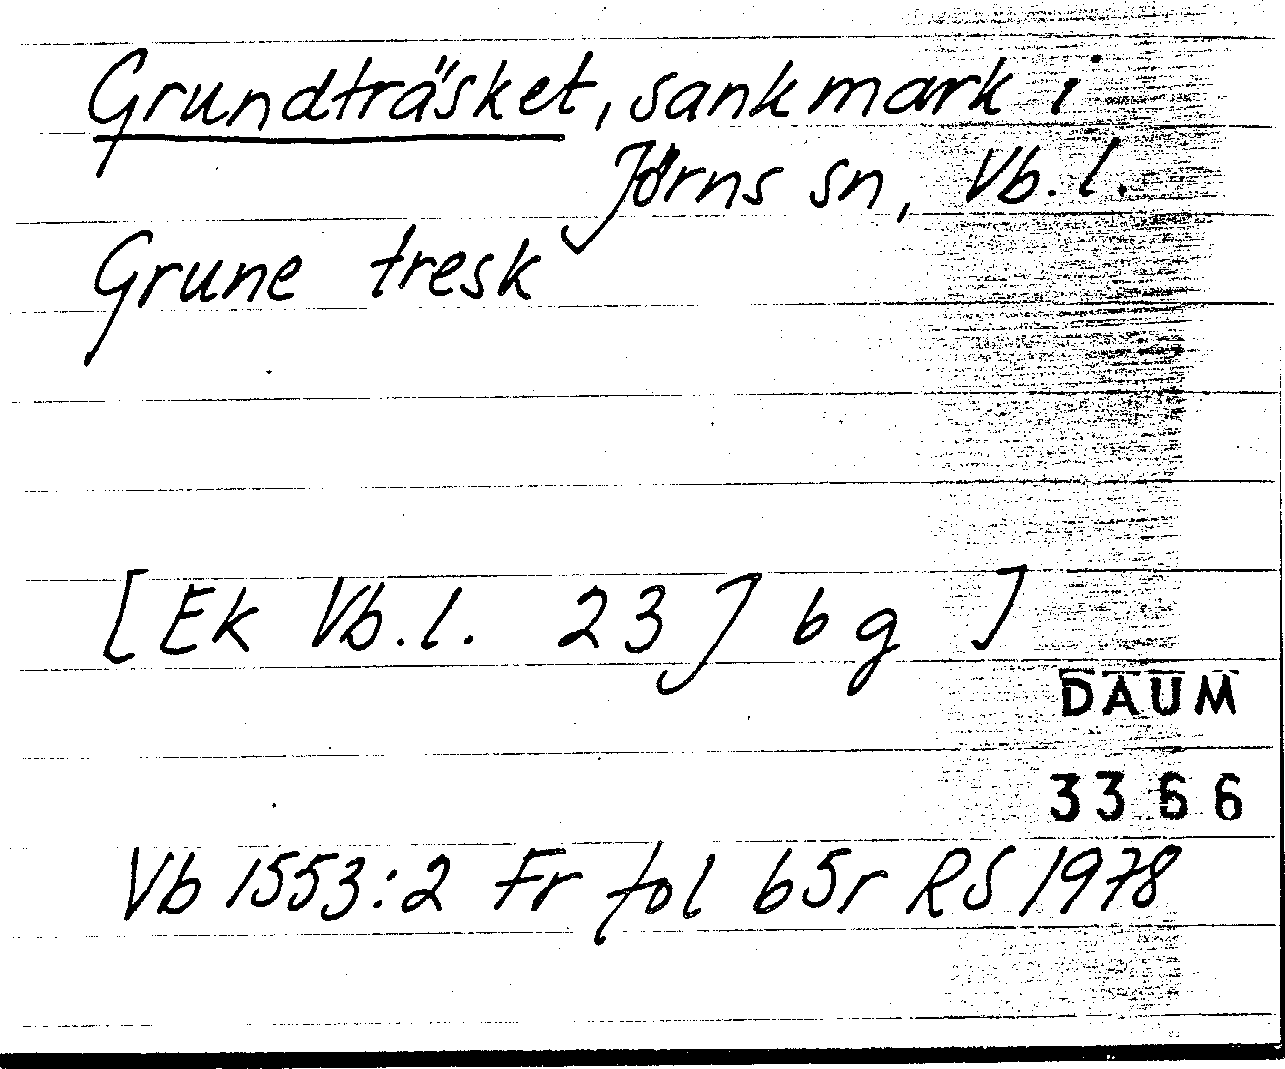 Grundträsket, sankmark i
Jörns sn, Vb. l.
Grune tresk
[Ek Vb. l. 23 J b g ]
DAUM
3366
Vb 1553:2 Fr fol 65r RS 1978